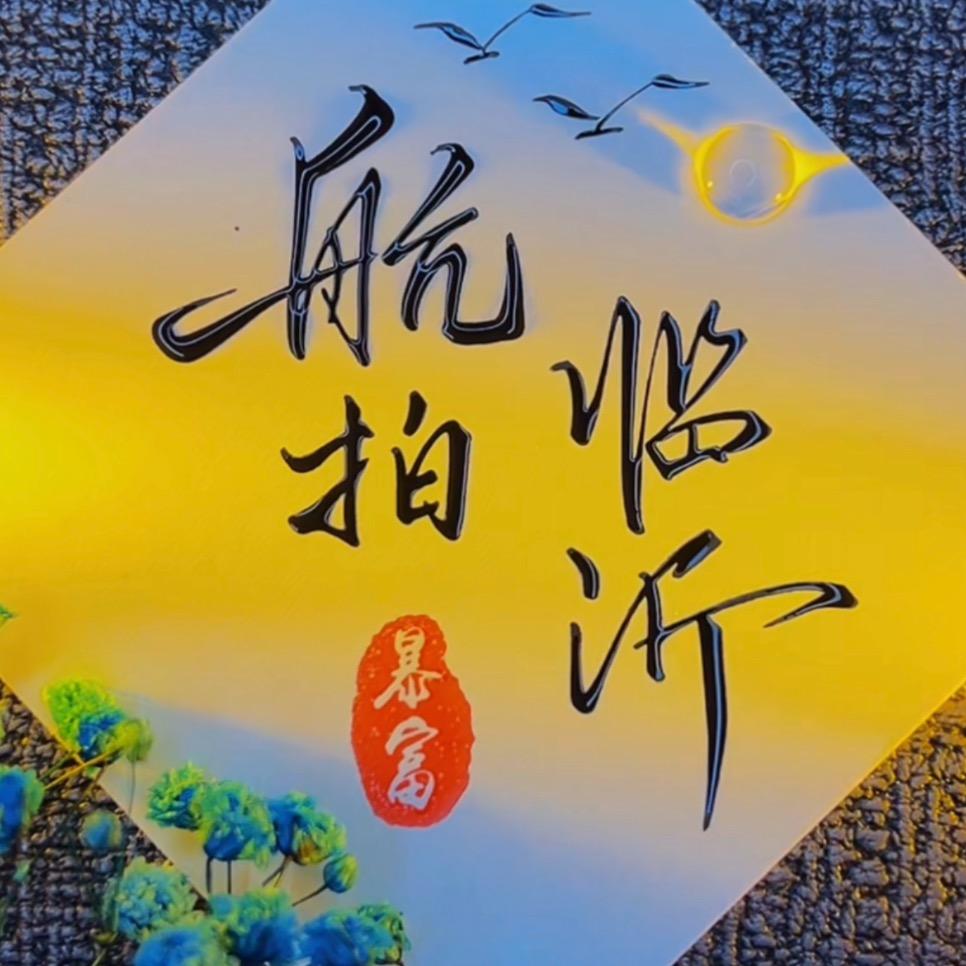 航拍
临沂
暴富